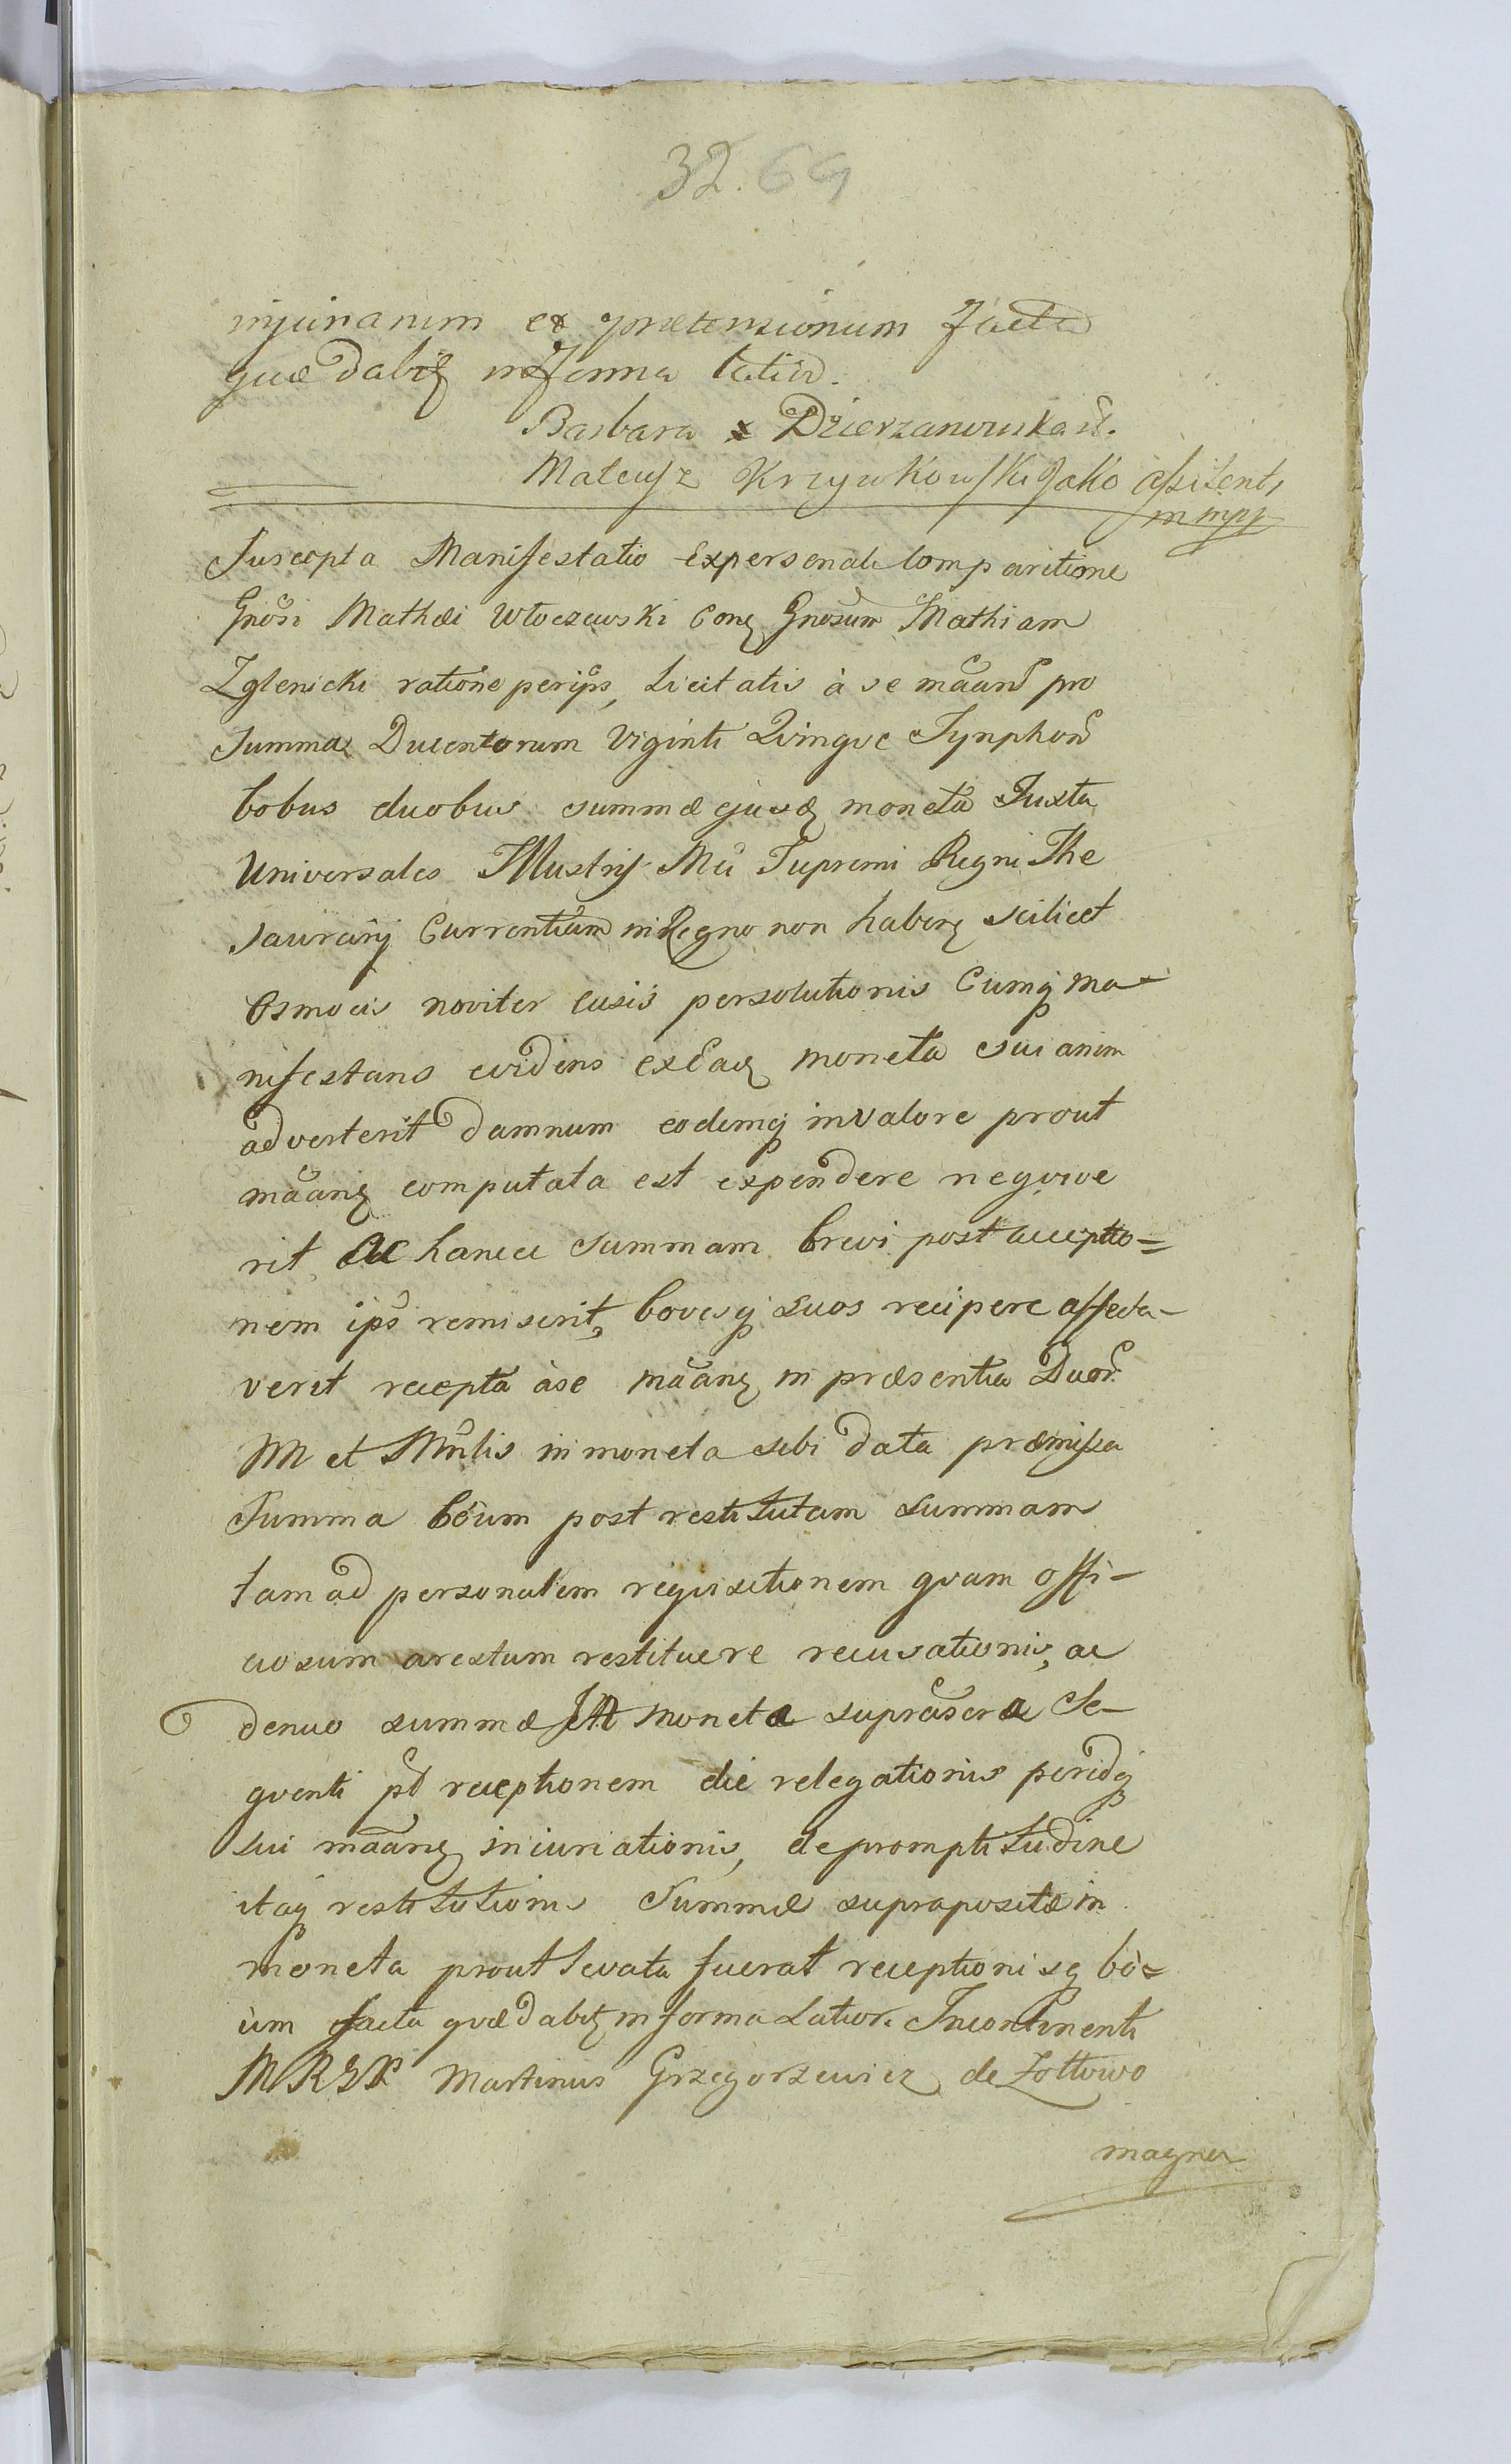 32. 69
injuriarum et prætensionum facta
quæ dabit in forma latior.
Barbara x Dzierzanowska
Mateusz Krzywkowski Jako assistent,
mmpp
Suscepta Manifestatio Expersonali Comparitione
Gnosi Mathæi Włoczewski Cong Gnosum Mathiam
Zglenicki ratione per ips, Licitatis à se mãand pro
Summa Ducentorum Viginti Quinque Tynphon
bobus duobus summæ ejusd moneta Juxta
Universales Illustriss Mũ Supremi Regni The
saurarij Currentiam in Regno non haberg scilicet
Osmocis noviter cusis persolutionis Cumq ma-
nifestans evidens ex Eadg moneta sui anim
adverterit damnum eodemq in valore prout
mãang computata est expendere nequive
rit, ac hancce Summam brevi post acceptio=
nem ips remiserit, bovesq suos recipere affecta-
verit recepta à se mãang in præsentia Duor
M et Mnlis in moneta sibi data præmissa
Summa boum post restitutam summam
tam ad personalem requisitionem quam offi-
ciosum arestum restituere recusationis, ac
denuo summæ in moneta suprascra Se-
quenti pt receptionem die relegationis peridq
sui mãang iniuriationis, de promptitudine
itaq restitutionis Summæ supra positæ in
moneta prout levata fuerat receptionisq bò=
um facta quæ dabit in forma Latior. Incontinenti
MRGP Martinus Grzegorzewicz de Zołtowo
magna